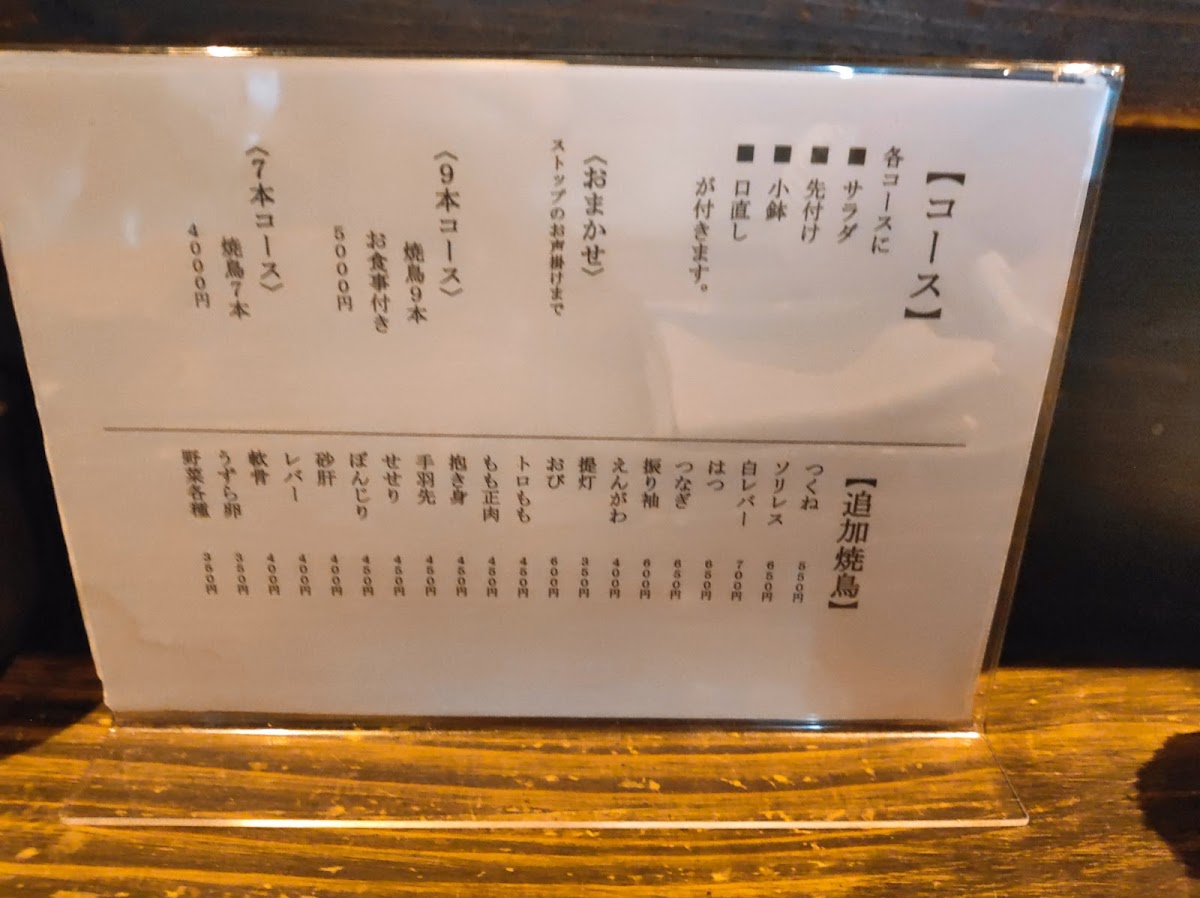 【コース】
各コースに
■ サラダ
■ 先付け
■ 小鉢
■ 口直し
が付きます。
《おまかせ》
ストップのお声掛けまで
《9本コース》
焼鳥9本
お食事付き
5000円
《7本コース》
焼鳥7本
4000円
【追加焼鳥】
つくね 550円
ソリレス 650円
白レバー 700円
はつ 650円
つなぎ 650円
振り袖 600円
えんがわ 400円
提灯 350円
おび 600円
トロもも 450円
もも正肉 450円
抱き身 450円
手羽先 450円
せせり 450円
ぼんじり 450円
砂肝 400円
レバー 400円
軟骨 400円
うずら卵 350円
野菜各種 350円